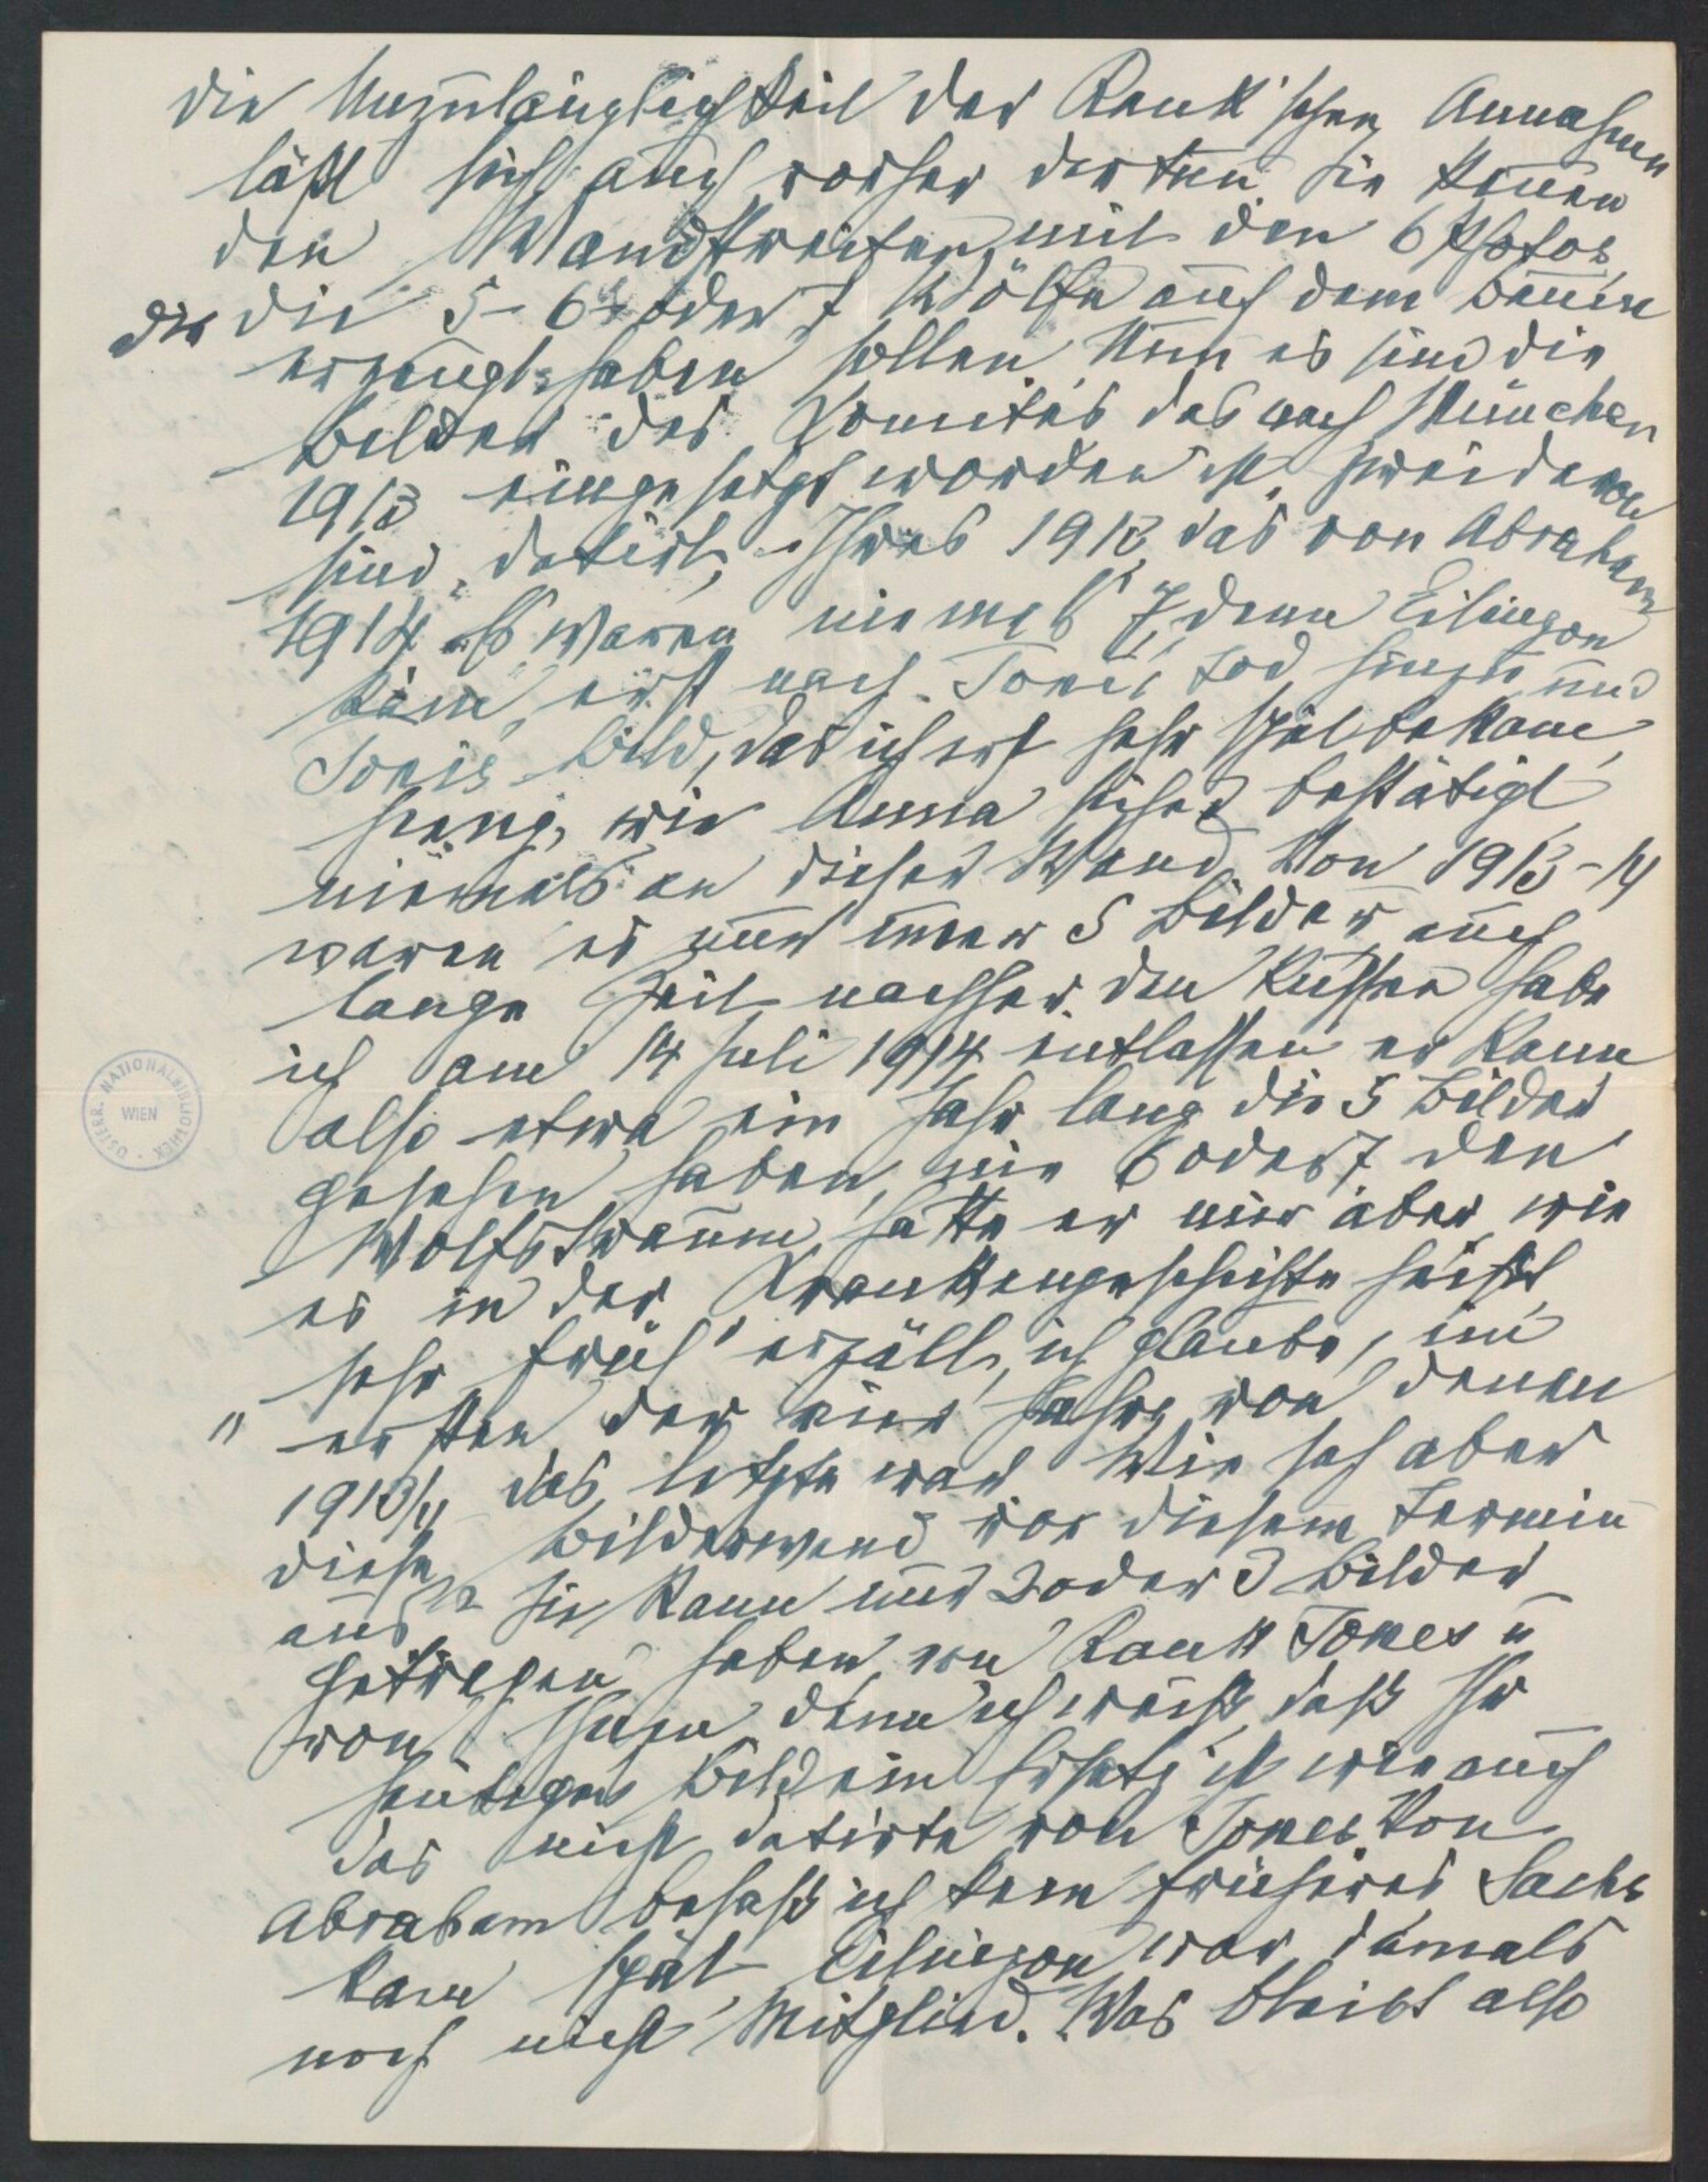 die Unzulänglichkeit der Rank'schen Annahmen
läßt sich auch vorher dartun. Sie kennen
den Wandstreifen mit den 6 Photos
der die 5 - 6 oder 7 Wölfe auf dem Baum
erzeugt haben sollen. Nun es sind die
Bilder des Komités das nach München
1913 eingesetzt worden ist. Zwei davon
sind datirt, Ihres 1913, das von Abraham
1914. Es waren niemals 7, denn Eitingon
kam erst nach Tonis Tod hinzu und
Tonis Bild, das ich erst sehr spät bekam
hieng, wie Anna sicher bestätigt
niemals an dieser Wand. Von 1913-14
waren es nun immer 5 Bilder auch
lange Zeit nachher. Den Russen habe
ich am 14 Juli 1914 entlassen er kann
also etwa ein Jahr lang die 5 Bilder
gesehen haben, nie 6 oder 7. Den
Wolfstraum hatte er mir aber, wie
es in der Krankengeschichte heißt
" sehr früh" erzält, ich glaube, im
ersten der vier Jahre, von denen
1913/14 das letzte war. Wie sah aber
diese Bilderwand vor diesem Termin
aus? Sie kann nur 2 oder 3 Bilder
getragen haben, von Rank Jones u
von Ihnen, denn ich weiß, daß Ihr
heutiges Bild ein Ersatz ist wie auch
das nicht datirte von Jones. Von
Abraham besaß ich kein früheres, Sachs
kam spät, Eitingon war damals
noch nicht Mitglied. Was bleibt also
ÖSTERR. NATIONALBIBLIOTHEK
WIEN